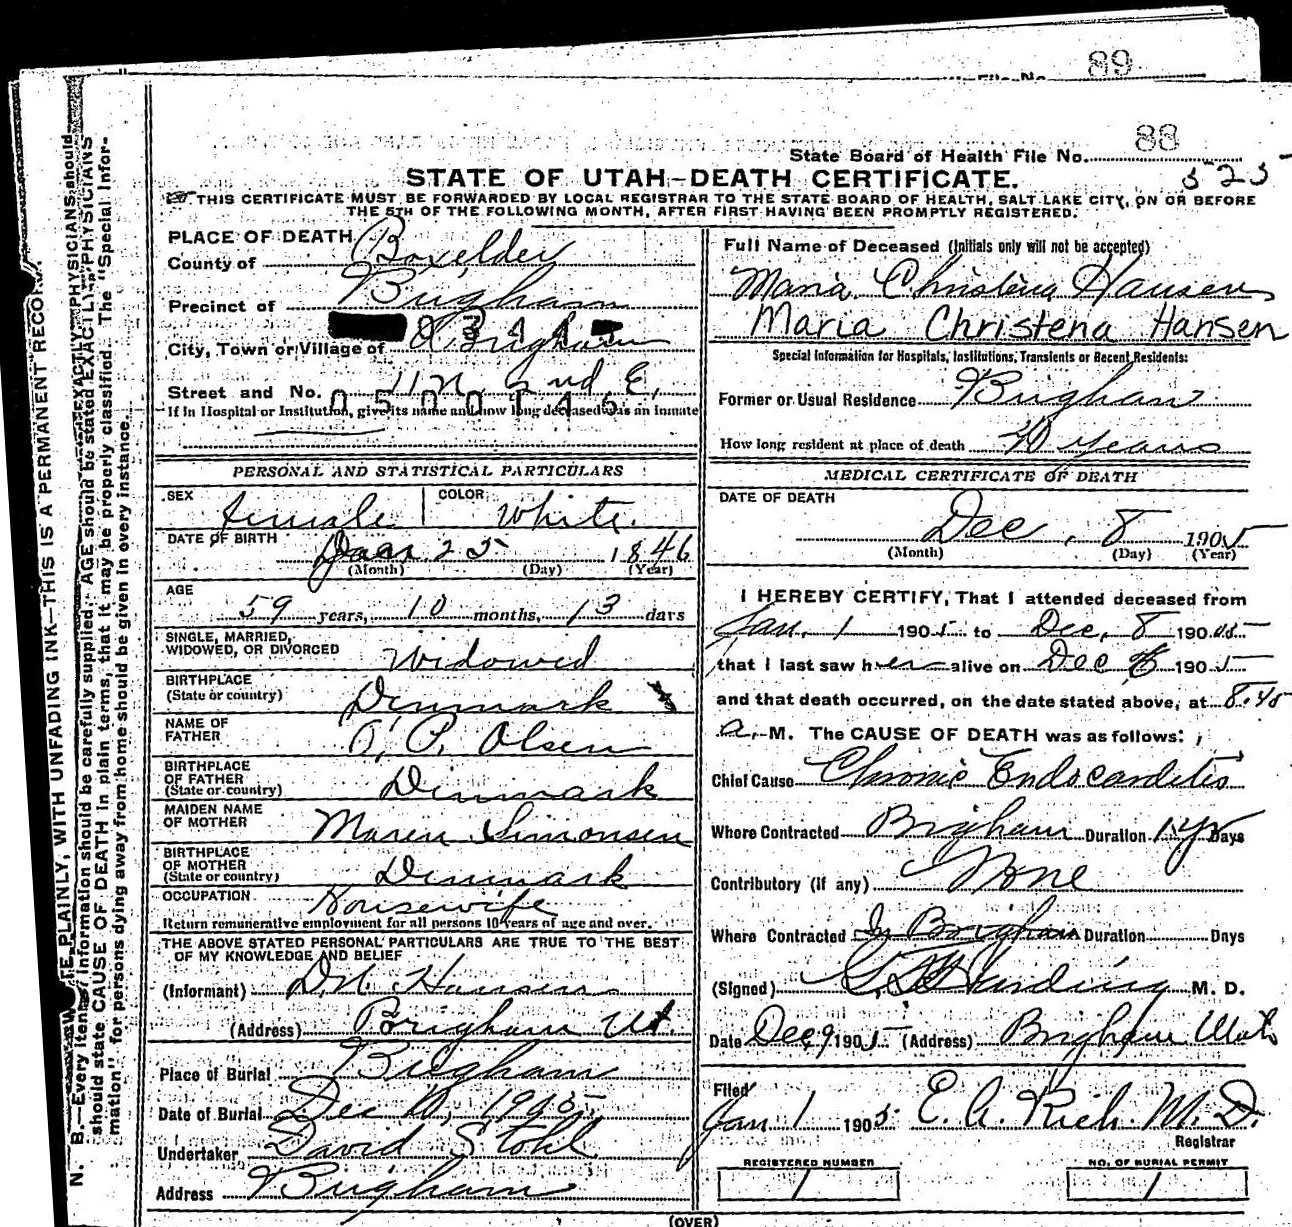 89
State Board of Health File No. 88
STATE OF UTAH-DEATH CERTIFICATE.
525
THIS CERTIFICATE MUST BE FORWARDED BY LOCAL REGISTRAR TO THE STATE BOARD OF HEALTH, SALT LAKE CITY, ON OR BEFORE
THE 5TH OF THE FOLLOWING MONTH, AFTER FIRST HAVING BEEN PROMPTLY REGISTERED.
PLACE OF DEATH
County of Boxelder
Precinct of Brigham
City, Town or Village of Brigham
Street and No. 11 N. 2nd E.
0500145
If in Hospital or Institution, give its name and how long deceased was an inmate
PERSONAL AND STATISTICAL PARTICULARS
SEX female COLOR White.
DATE OF BIRTH Jan 25 1846
(Month) (Day) (Year)
AGE
59 years, 10 months, 13 days
SINGLE, MARRIED,
WIDOWED, OR DIVORCED Widowed
BIRTHPLACE
(State or country) Denmark
NAME OF
FATHER P. Olsen
BIRTHPLACE
OF FATHER
(State or country) Denmark
MAIDEN NAME
OF MOTHER Maren Simonsen
BIRTHPLACE
OF MOTHER
(State or country) Denmark
OCCUPATION Housewife
Return remunerative employment for all persons 10 years of age and over.
THE ABOVE STATED PERSONAL PARTICULARS ARE TRUE TO THE BEST
OF MY KNOWLEDGE AND BELIEF
(Informant) D.N. Hansen
(Address) Brigham Ut.
Place of Burial Brigham
Date of Burial Dec 10, 1905.
Undertaker David Stohl
Address Brigham
Full Name of Deceased (Initials only will not be accepted)
Maria Christina Hansen
Maria Christena Hansen
Special Information for Hospitals, Institutions, Transients or Recent Residents:
Former or Usual Residence Brigham
How long resident at place of death 40 years
MEDICAL CERTIFICATE OF DEATH
DATE OF DEATH
Dec. 8 1905
(Month) (Day) (Year)
I HEREBY CERTIFY, That I attended deceased from
Jan. 1 1905 to Dec. 8 190 05
that I last saw her alive on Dec 8 1905
and that death occurred, on the date stated above, at 8.45
a. M. The CAUSE OF DEATH was as follows:
Chief Cause Chronic Endocarditis
Where Contracted Brigham Duration 1 yr Days
Contributory (if any) None
Where Contracted In Brigham Duration Days
(Signed) Harding M. D.
Date Dec 9 1905 (Address) Brigham Utah
Filed
Jan 1 1905 E. A. Rich. M. D.
Registrar
REGISTERED NUMBER
1
NO. OF BURIAL PERMIT
1
(OVER)
N. B.—Every item of information should be carefully supplied. AGE should be stated EXACTLY. PHYSICIANS
should state CAUSE OF DEATH in plain terms, that it may be properly classified. The "Special Infor-
mation" for persons dying away from home should be given in every instance.
PLAINLY, WITH UNFADING INK—THIS IS A PERMANENT RECORD.